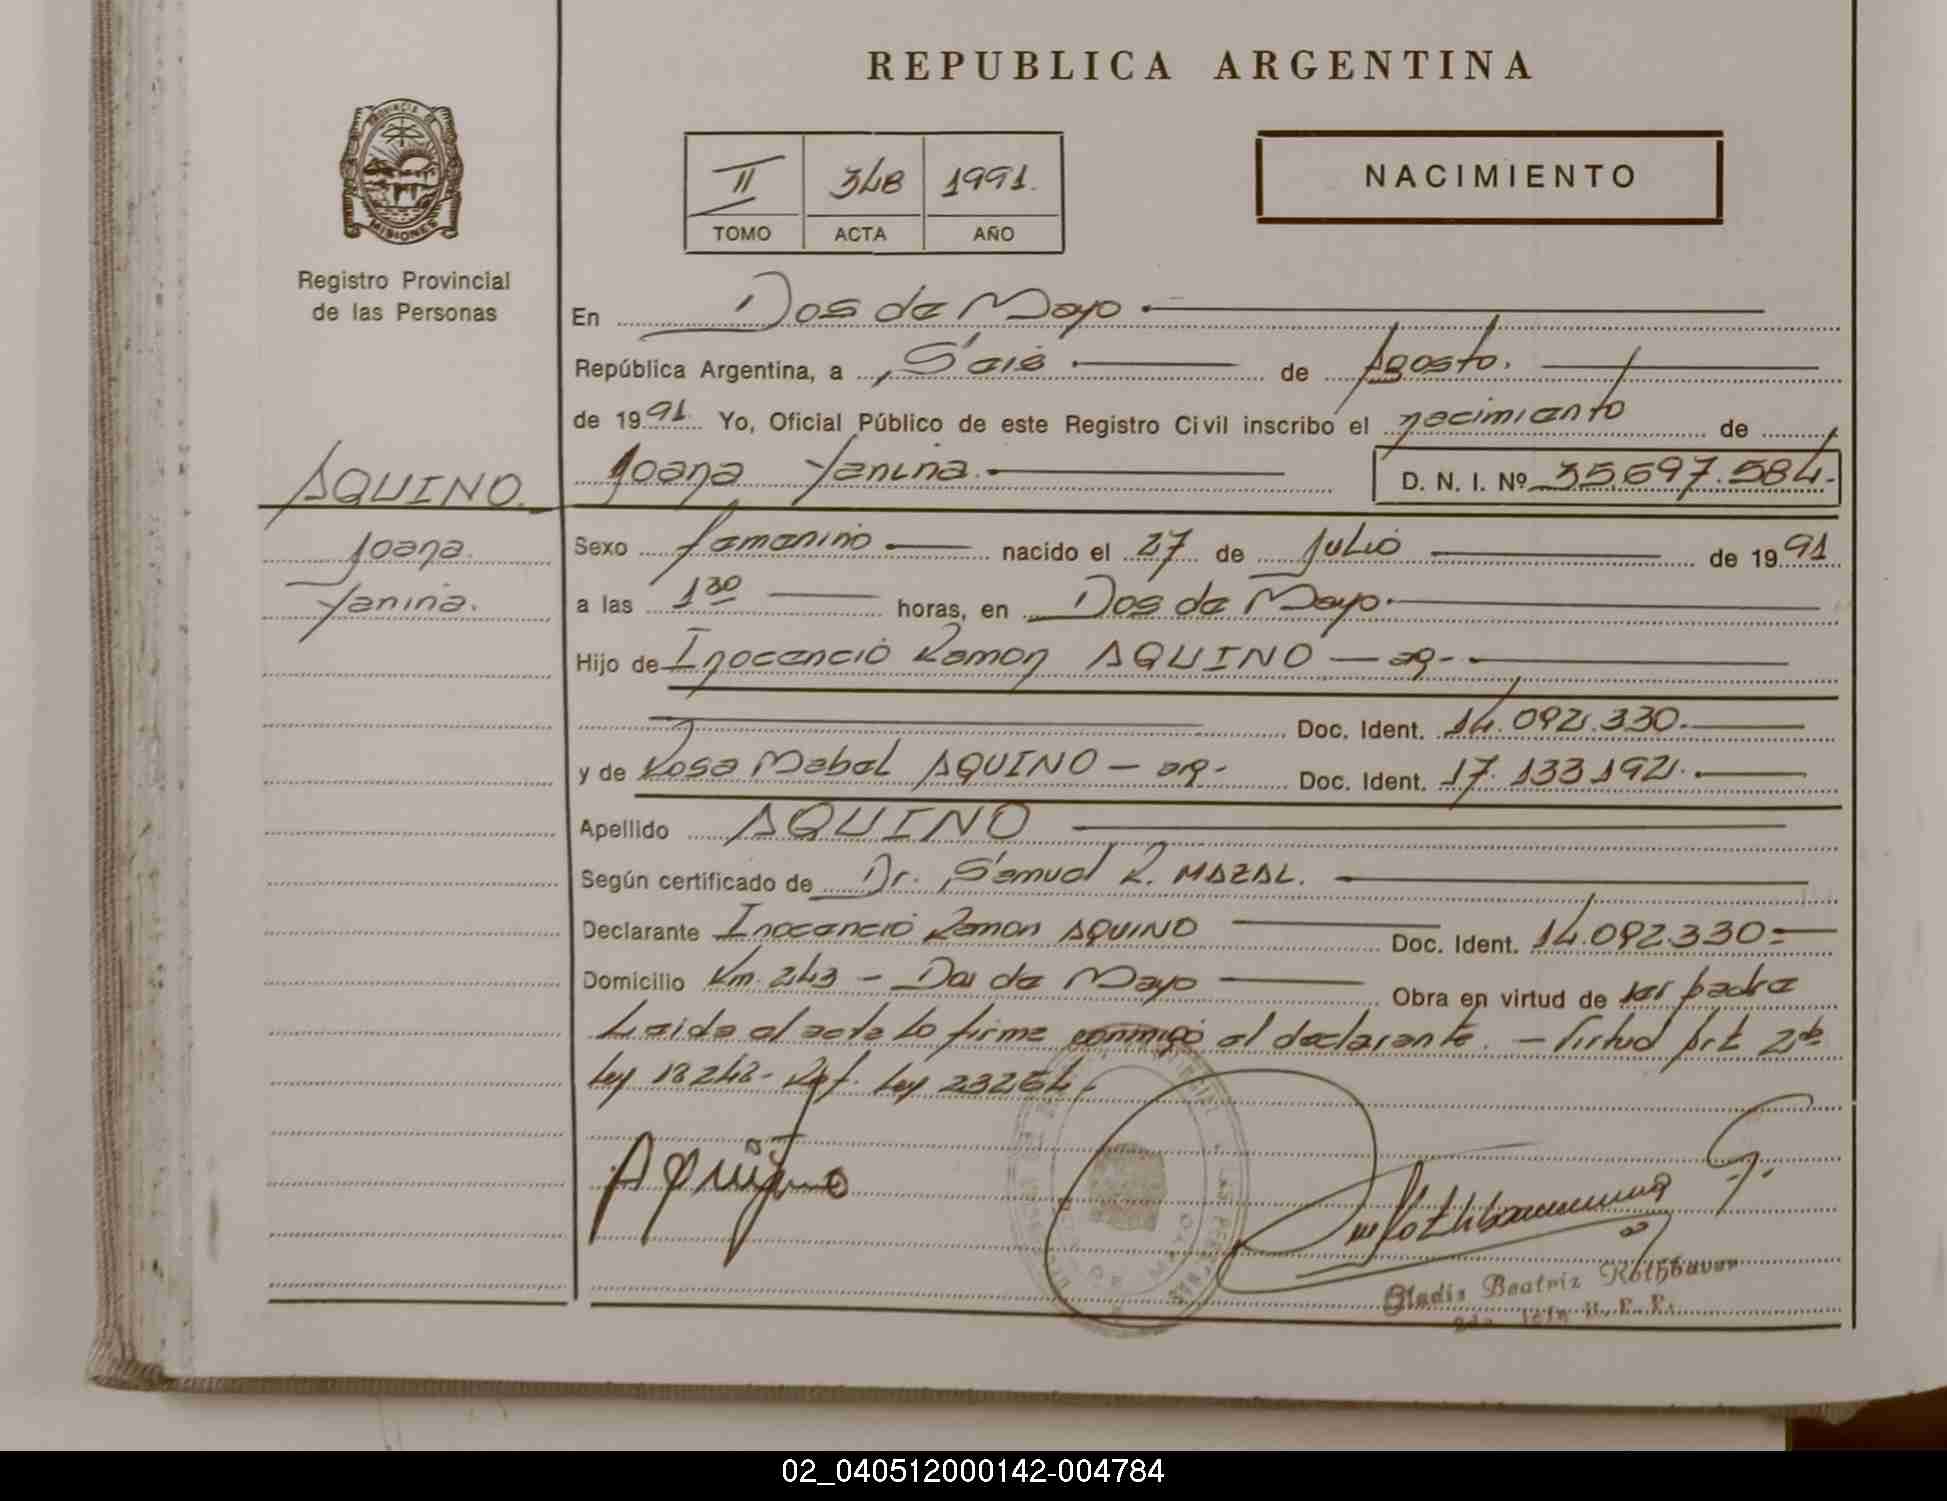 REPUBLICA ARGENTINA
PROVINCIA DE MISIONES
Registro Provincial
de las Personas
II 348 1991.
TOMO ACTA AÑO
NACIMIENTO
En Dos de Mayo
República Argentina, a Seis de Agosto.
de 1991. Yo, Oficial Público de este Registro Civil inscribo el nacimiento de
AQUINO.
Joana
Yanina.
Joana Yanina. D. N. I. Nº 35.697.584.
Sexo femenino nacido el 27 de Julio de 1991
a las 1 30 horas, en Dos de Mayo.
Hijo de Inocencio Ramon AQUINO - ag.
Doc. Ident. 14.092.330.
y de Rosa Mabel AQUINO - arg. Doc. Ident. 17.133.192.
Apellido AQUINO
Según certificado de Dr. Samuel R. MAZAL.
Declarante Inocencio Ramon AQUINO Doc. Ident. 14.092.330.
Domicilio Km. 243 - Dos de Mayo Obra en virtud de ser padre
Leida el acta lo firma conmigo el declarante. - Virtud Art 2do
Ley 18248- Ref. Ley 23264-
Aquino
Gladis Beatriz Rothbauer